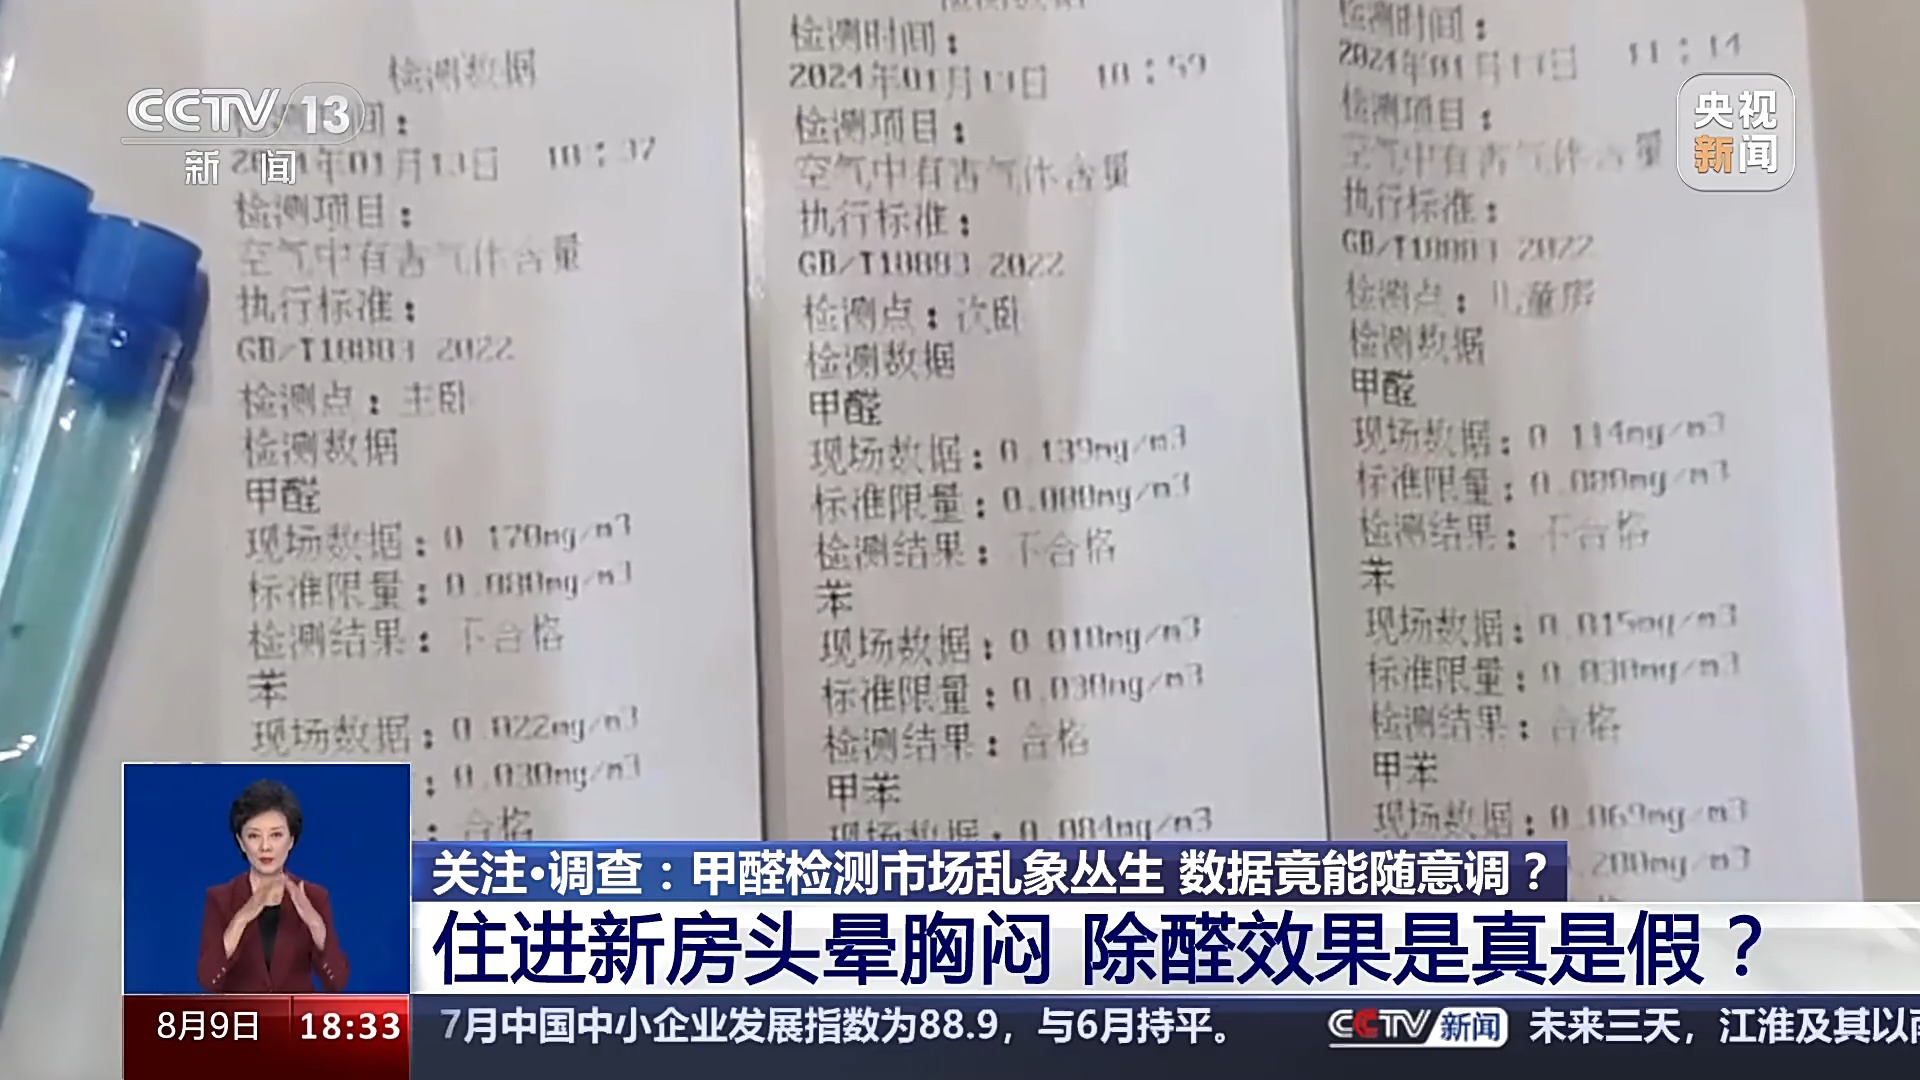 检测数据
CCTV 13
新闻
2024年01月13日 10:37
检测项目：
空气中有害气体含量
执行标准：
GB/T18883 2022
检测点：主卧
检测数据
甲醛
现场数据：0.170mg/m3
标准限量：0.080mg/m3
检测结果：不合格
苯
现场数据：0.022mg/m3
：0.030mg/m3
：合格
检测时间：
2024年01月13日 10:59
检测项目：
空气中有害气体含量
执行标准：
GB/T18883 2022
检测点：次卧
检测数据
甲醛
现场数据：0.139mg/m3
标准限量：0.080mg/m3
检测结果：不合格
苯
现场数据：0.018mg/m3
标准限量：0.030mg/m3
检测结果：合格
甲苯
现场数据：0.084mg/m3
检测时间：
2024年01月13日 11:14
检测项目：
空气中有害气体含量
执行标准：
GB/T18883 2022
检测点：儿童房
检测数据
甲醛
现场数据：0.114mg/m3
标准限量：0.080mg/m3
检测结果：不合格
苯
现场数据：0.015mg/m3
标准限量：0.030mg/m3
检测结果：合格
甲苯
现场数据：0.069mg/m3
0.200mg/m3
央视
新闻
关注•调查：甲醛检测市场乱象丛生 数据竟能随意调？
住进新房头晕胸闷 除醛效果是真是假？
8月9日 18:33
7月中国中小企业发展指数为88.9，与6月持平。 CCTV新闻 未来三天，江淮及其以